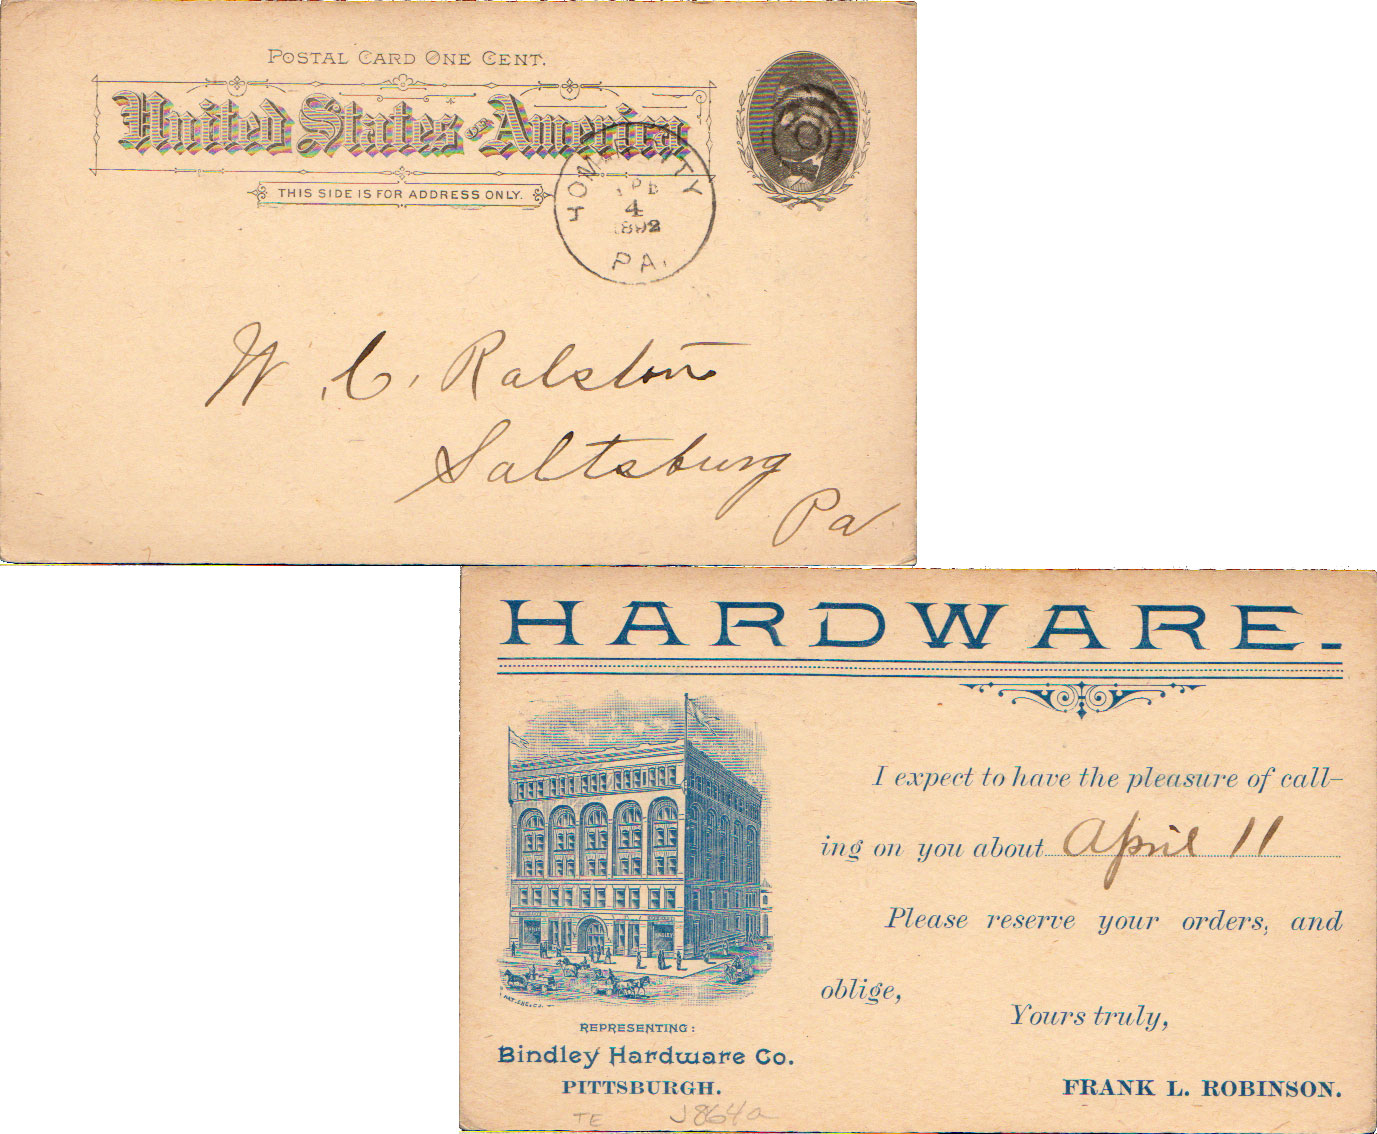 POSTAL CARD ONE CENT.
United States of America
THIS SIDE IS FOR ADDRESS ONLY.
HOMER CITY
APR
4
1892
PA.
W. C. Ralston
Saltsburg
Pa
HARDWARE.
I expect to have the pleasure of call-
ing on you about April 11
Please reserve your orders, and
oblige,
Yours truly,
REPRESENTING:
Bindley Hardware Co.
PITTSBURGH.
FRANK L. ROBINSON.
TE J864a